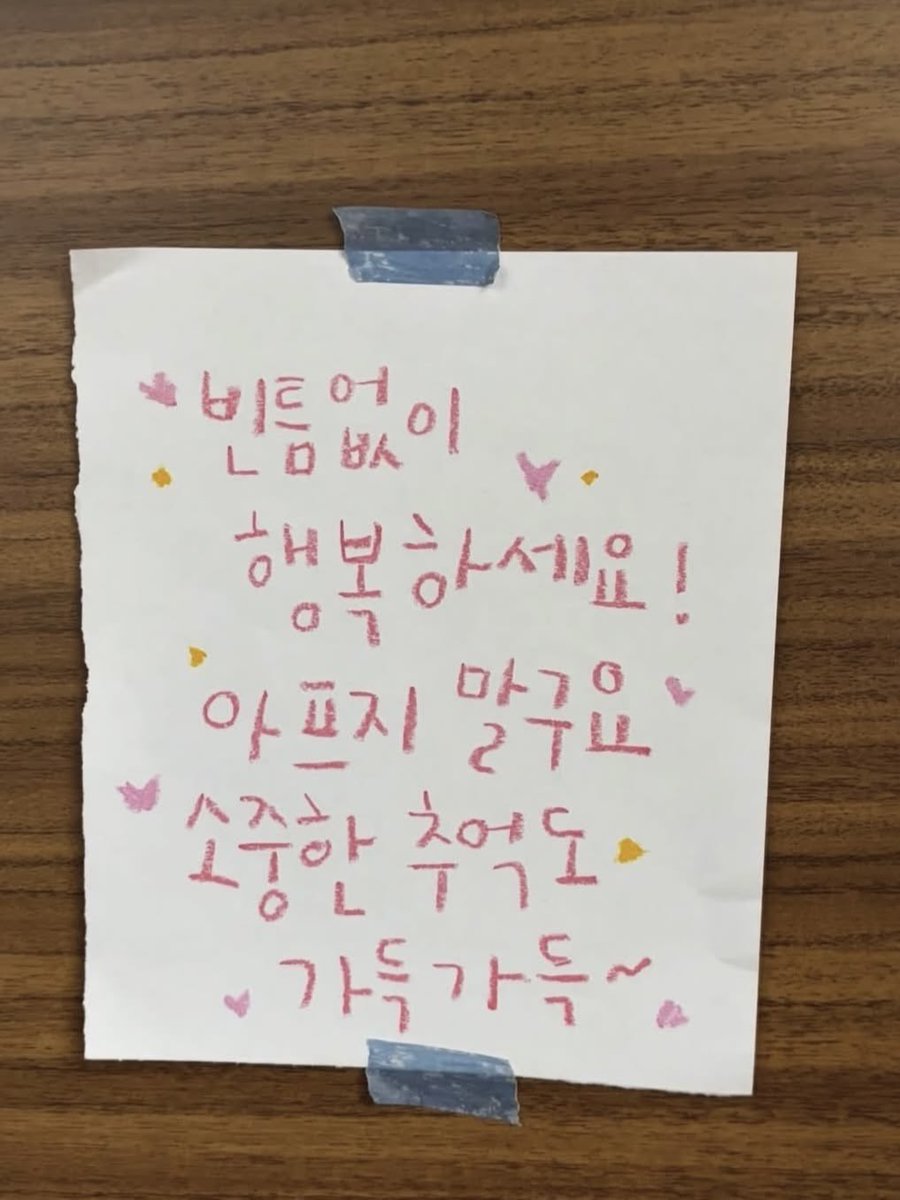 빈틈없이
행복하세요!
아프지 말구요
소중한 추억도
가득가득~